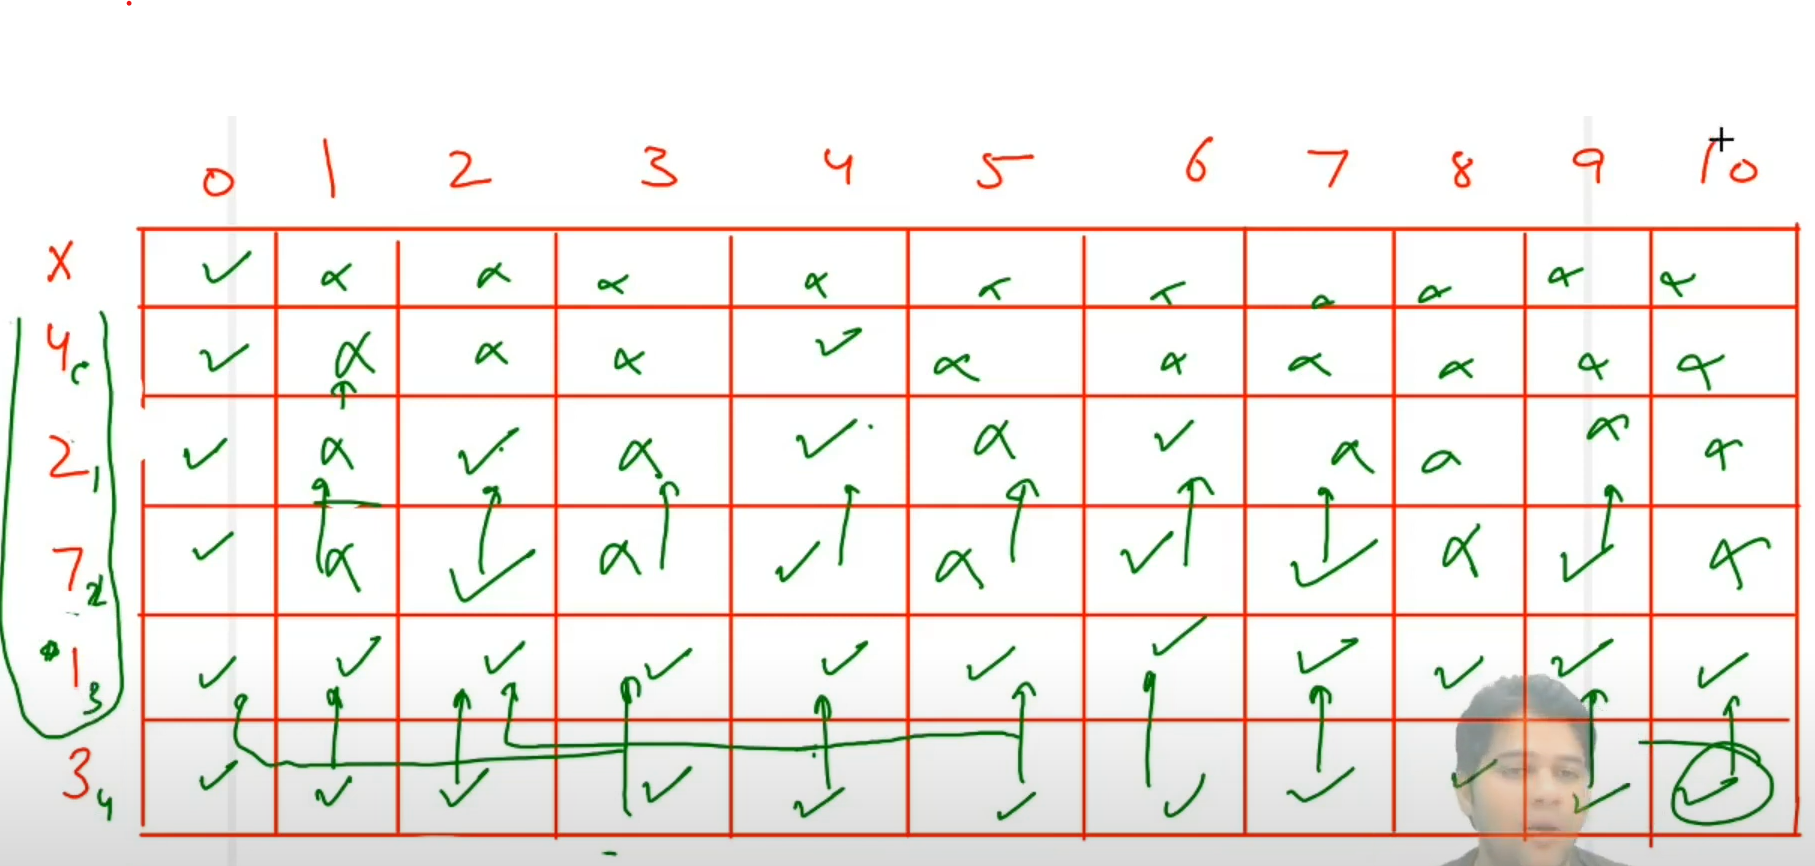 0 1 2 3 4 5 6 7 8 9 10
X ✓ α α α α α α α α α α
4 0 ✓ α α α ✓ α α α α α α
2 1 ✓ α ✓ α ✓ α ✓ α α α α
7 2 ✓ α ✓ α ✓ α ✓ ✓ α ✓ α
1 3 ✓ ✓ ✓ ✓ ✓ ✓ ✓ ✓ ✓ ✓ ✓
3 4 ✓ ✓ ✓ ✓ ✓ ✓ ✓ ✓ ✓ ✓ ✓